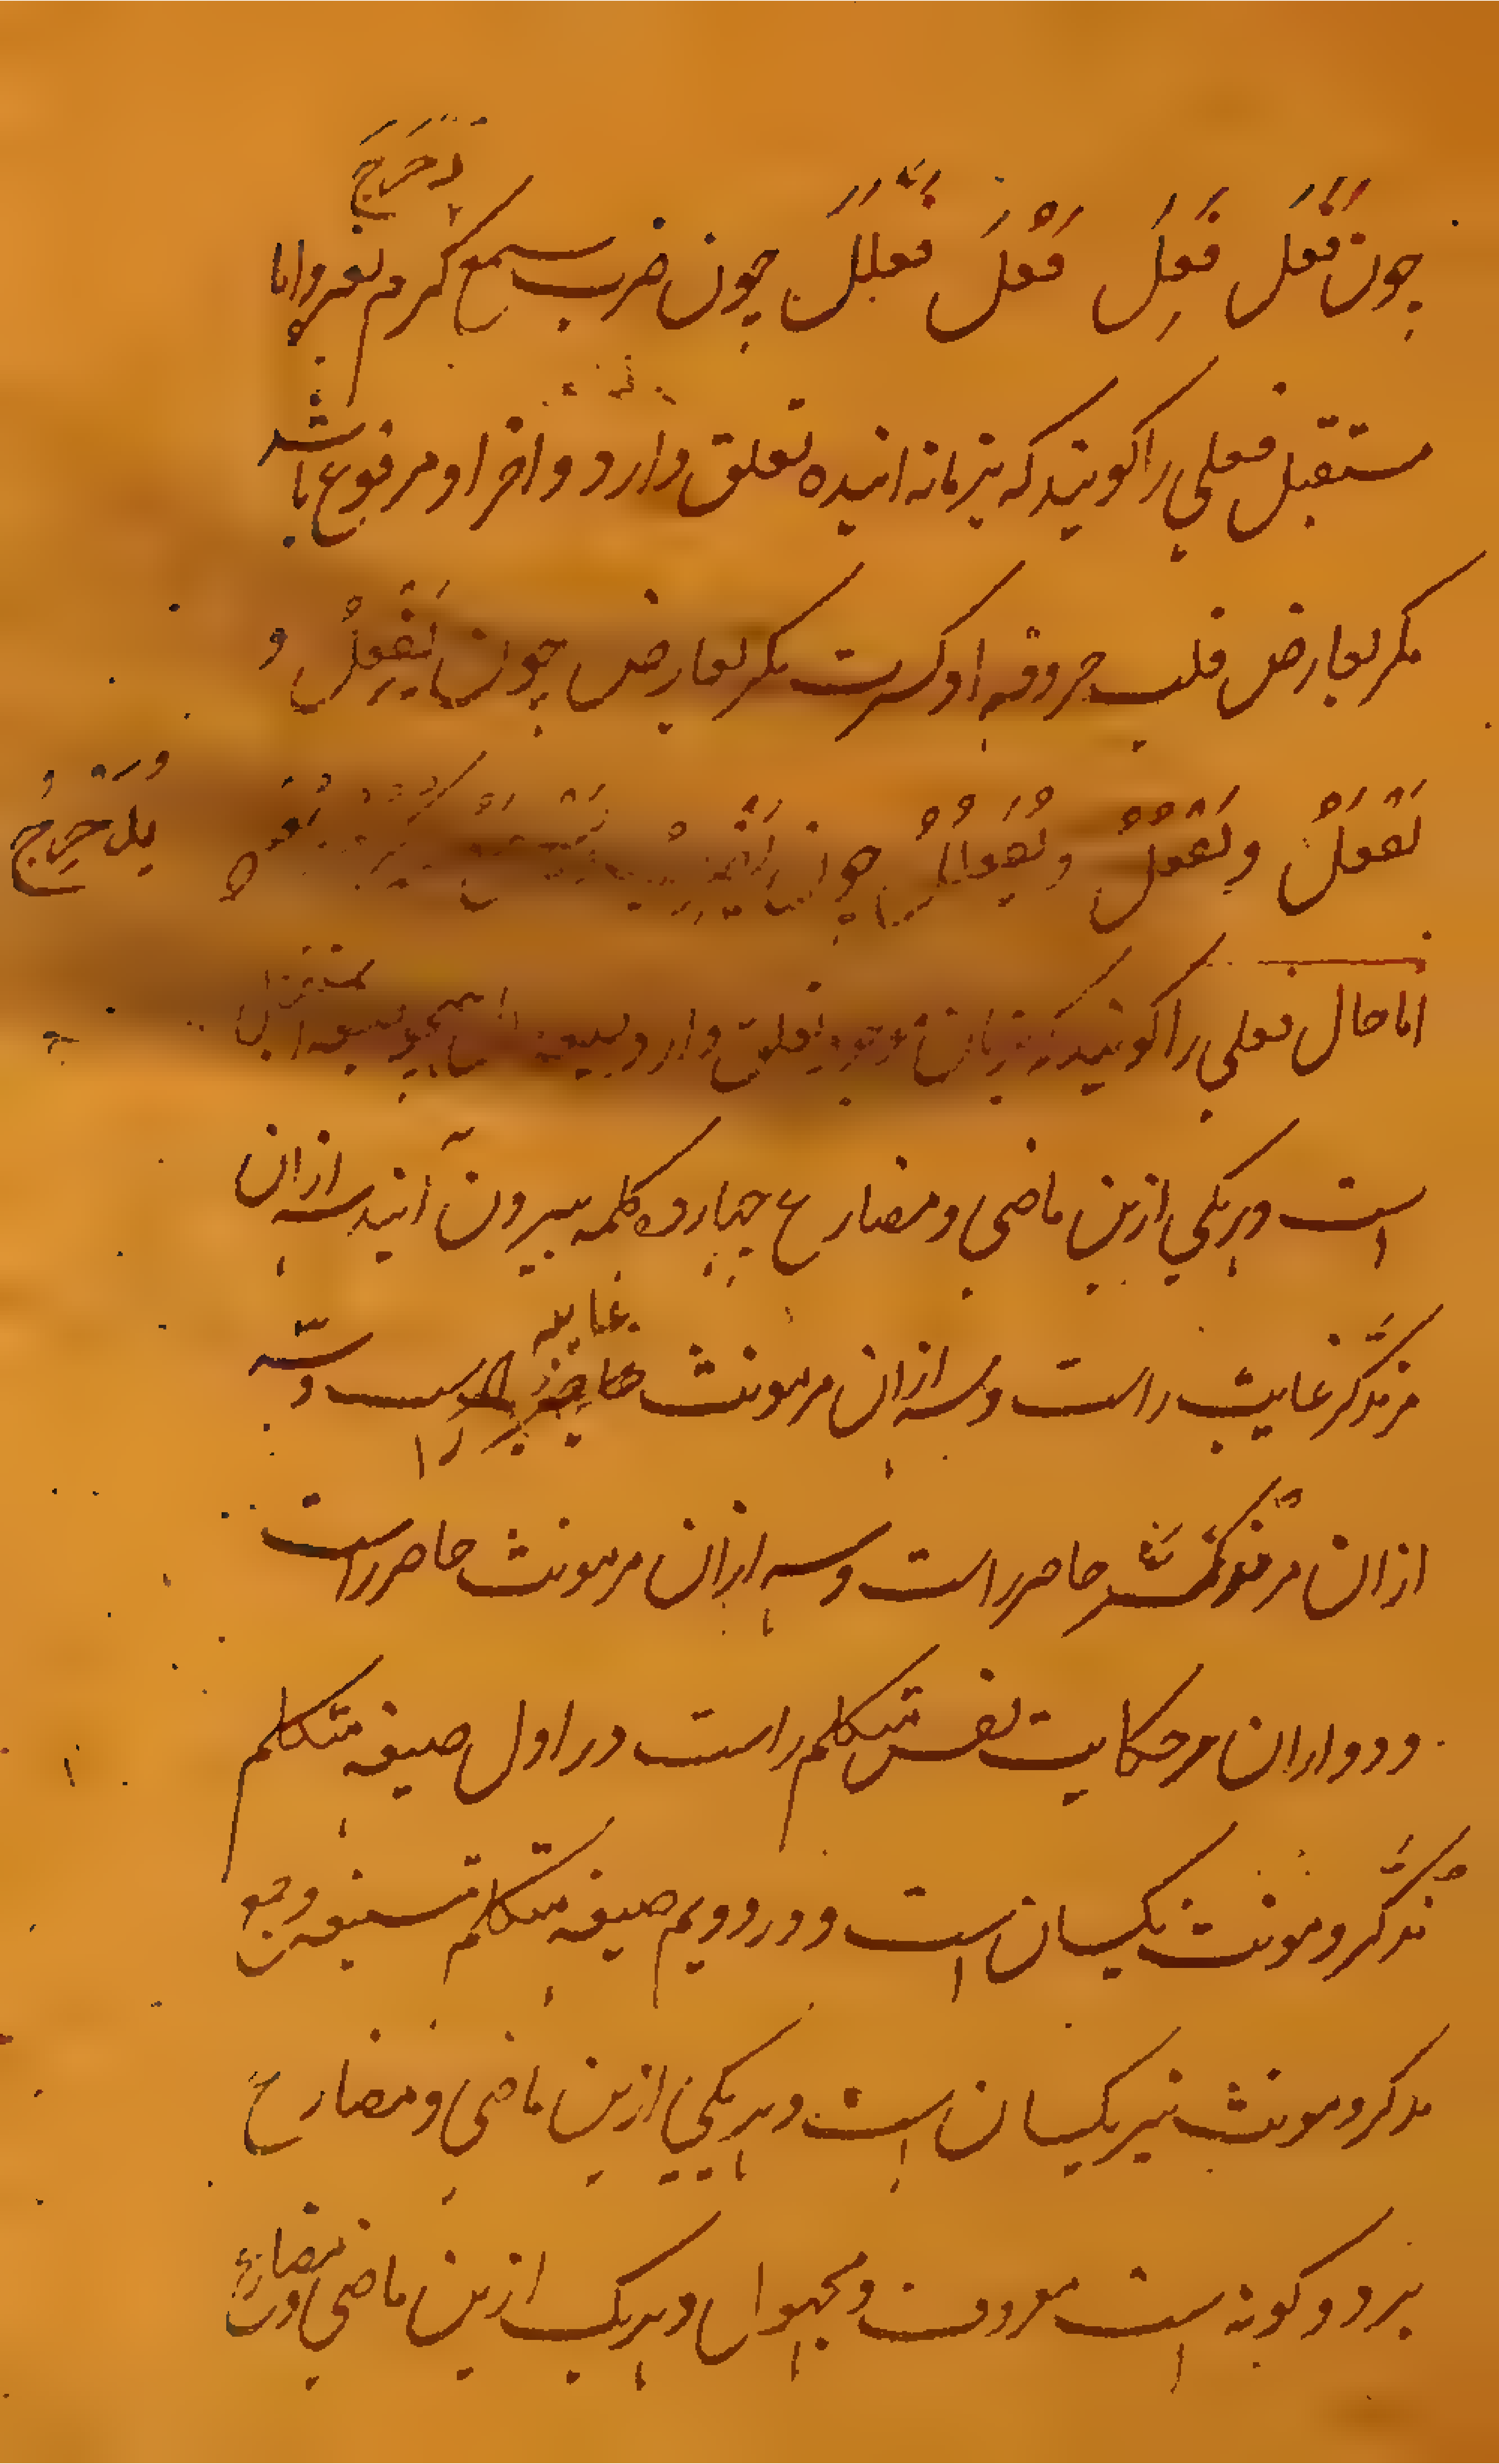 چون فَعَلَ فَعِلَ فَعُلَ فَعْلَلَ چون ضرب سمع کرم بعثر و اما
دَحْرَجَ
مستقبل فعلی را کویند که بزمانه اینده تعلق دارد و اخر او مرفوع باشد
مکر بعارض چون یَفْعِلُ و
یَفْعَلُ و یَفْعُلُ و یُفَعْلِلُ چون
یُدَحْرِجُ
اما حال فعلی را کویند که بزمان موجود تعلق دارد
است و هریکی ازین ماضی و مضارع چهارده کلمه بیرون آیند سه ازان
مر مذکر غایب راست و سه ازان مر مونث غایبه راست و سه
ازان مر مذکر حاضر راست و سه ازان مر مونث حاضر راست
و دو ازان مر حکایت نفس متکلم راست در اول صیغه متکلم
مذکر و مونث یکسان است و در دویم صیغه متکلم تسنیه و جمع
مذکر و مونث نیز یکسان است و هریکی ازین ماضی و مضارع
بر دو کونه است معروف و مجهول و هریک ازین ماضی و مضارع